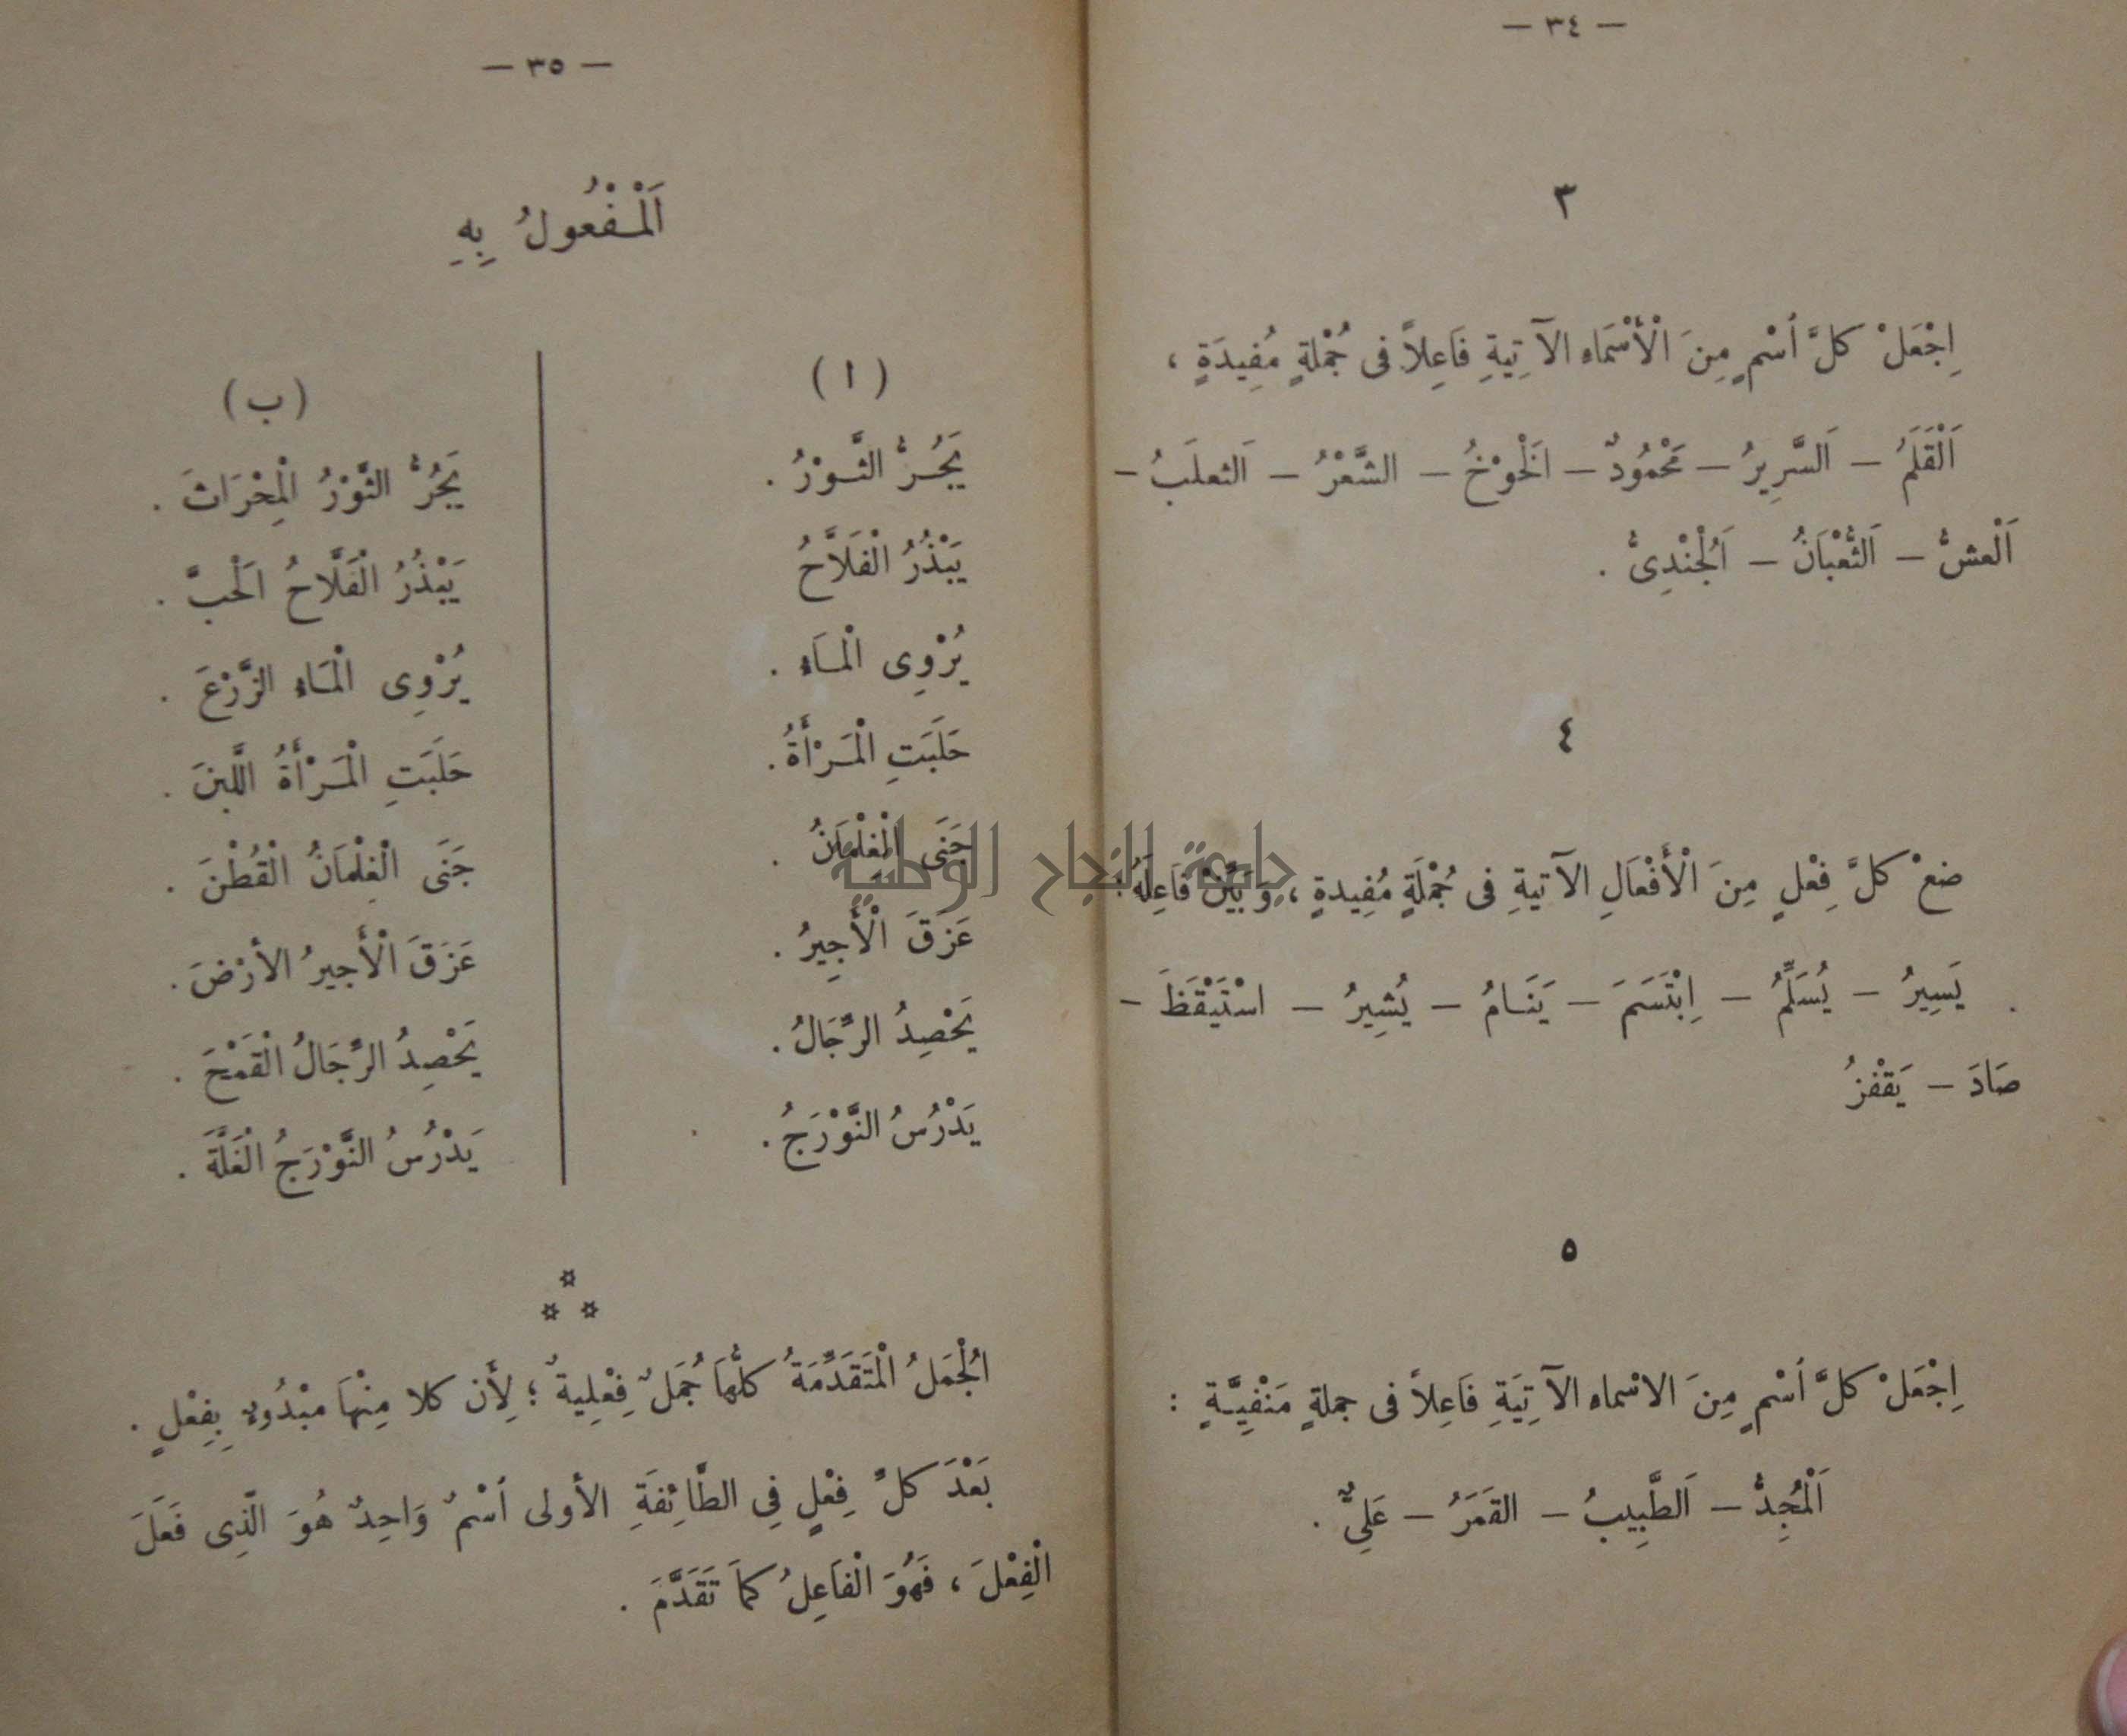 — ٣٤ —
٣
اِجْعَلْ كلَّ اُسْمٍ مِنَ الْأَسْمَاءِ الآتِيَةِ فَاعِلاً فى جُمْلةٍ مُفِيدَةٍ ،
اَلْقَلَمُ — اَلسَّرِيرُ — مَحْمُودٌ — اَلْخَوْخُ — الشَّعْرُ — اَلثعلَبُ —
اَلْعشُّ — اَلثُّعْبَانُ — اَلْجُنْدِىُّ .
٤
ضعْ كلَّ فِعْلٍ مِنَ الْأَفْعَالِ الآتيةِ فى جُمْلَةٍ مُفِيدةٍ ، وَبَيِّنْ فَاعِلَهُ :
يَسِيرُ — يُسَلِّمُ — اِبْتَسَمَ — يَنَامُ — يُشِيرُ — اسْتَيْقَظَ —
صَادَ — يَقْفزُ
٥
اِجْعَلْ كلَّ اُسْمٍ مِنَ الاسْماء الآتِيَةِ فَاعِلاً فى جملةٍ مَنْفِيَّةٍ :
اَلْمُجِدُّ — اَلطَّبِيبُ — القَمَرُ — عَلِيٌّ .
— ٣٥ —
اَلْمَفْعُولُ بِهِ
( ا )
يَجُرُّ الثَّوْرُ .
يَبْذُرُ الْفَلاَّحُ
يُرْوِى الْمَاء .
حَلَبَتِ الْمَرْأَةُ .
جَنَى الْغِلْمَانُ .
عَزَقَ الْأَجِيرُ .
يَحْصِدُ الرِّجَالُ .
يَدْرُسُ النَّوْرَجُ .
( ب )
يَجُرُّ الثَّوْرُ الْمِحْرَاثَ .
يَبْذُرُ الْفَلَّاحُ الْحَبَّ .
يُرْوِى الْمَاء الزَّرْعَ .
حَلَبَتِ الْمَرْأَةُ اللَّبنَ .
جَنَى الْغِلْمَانُ الْقُطْنَ .
عَزَقَ الْأَجيرُ الأرْضَ .
يَحْصِدُ الرِّجَالُ الْقَمْحَ .
يَدْرُسُ النَّوْرَجُ الْغَلَّةَ .
الْجُمَلُ الْمُتَقَدِّمَةُ كلُّهَا جُمَلٌ فِعْلِيةٌ ؛ لِأَن كلا مِنْهَا مَبْدُوءٌ بِفِعْلٍ .
بَعْدَ كلِّ فِعْلٍ فِي الطَّائِفَةِ الأولى اُسْمٌ وَاحِدٌ هُوَ الَّذِى فَعَلَ
الْفِعْلَ ، فَهُوَ الْفَاعِلُ كمَا تَقَدَّمَ .
جامعة النجاح الوطنية